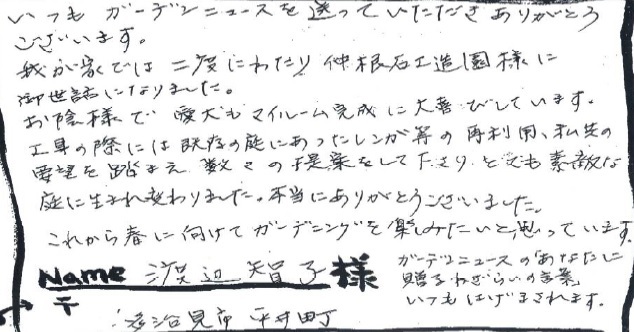 いつも ガーデンニュースを送っていただきありがとう
ございます。
我が家では 二度にわたり 仲根石工造園様に
御世話になりました。
お陰様で 愛犬もマイルーム完成に大喜びしています。
工事の際には既存の庭にあったレンガ等の再利用、私共の
要望を踏まえ 数々の提案をして下さり とても素敵な
庭に生まれ変わりました。本当にありがとうございました。
これから春に向けてガーデニングを楽しみたいと思っています。
Name 渡辺智子様
〒
多治見市 平井町
ガーデンニュースの「あなたに
贈るねぎらいの言葉
いつもはげまされます。